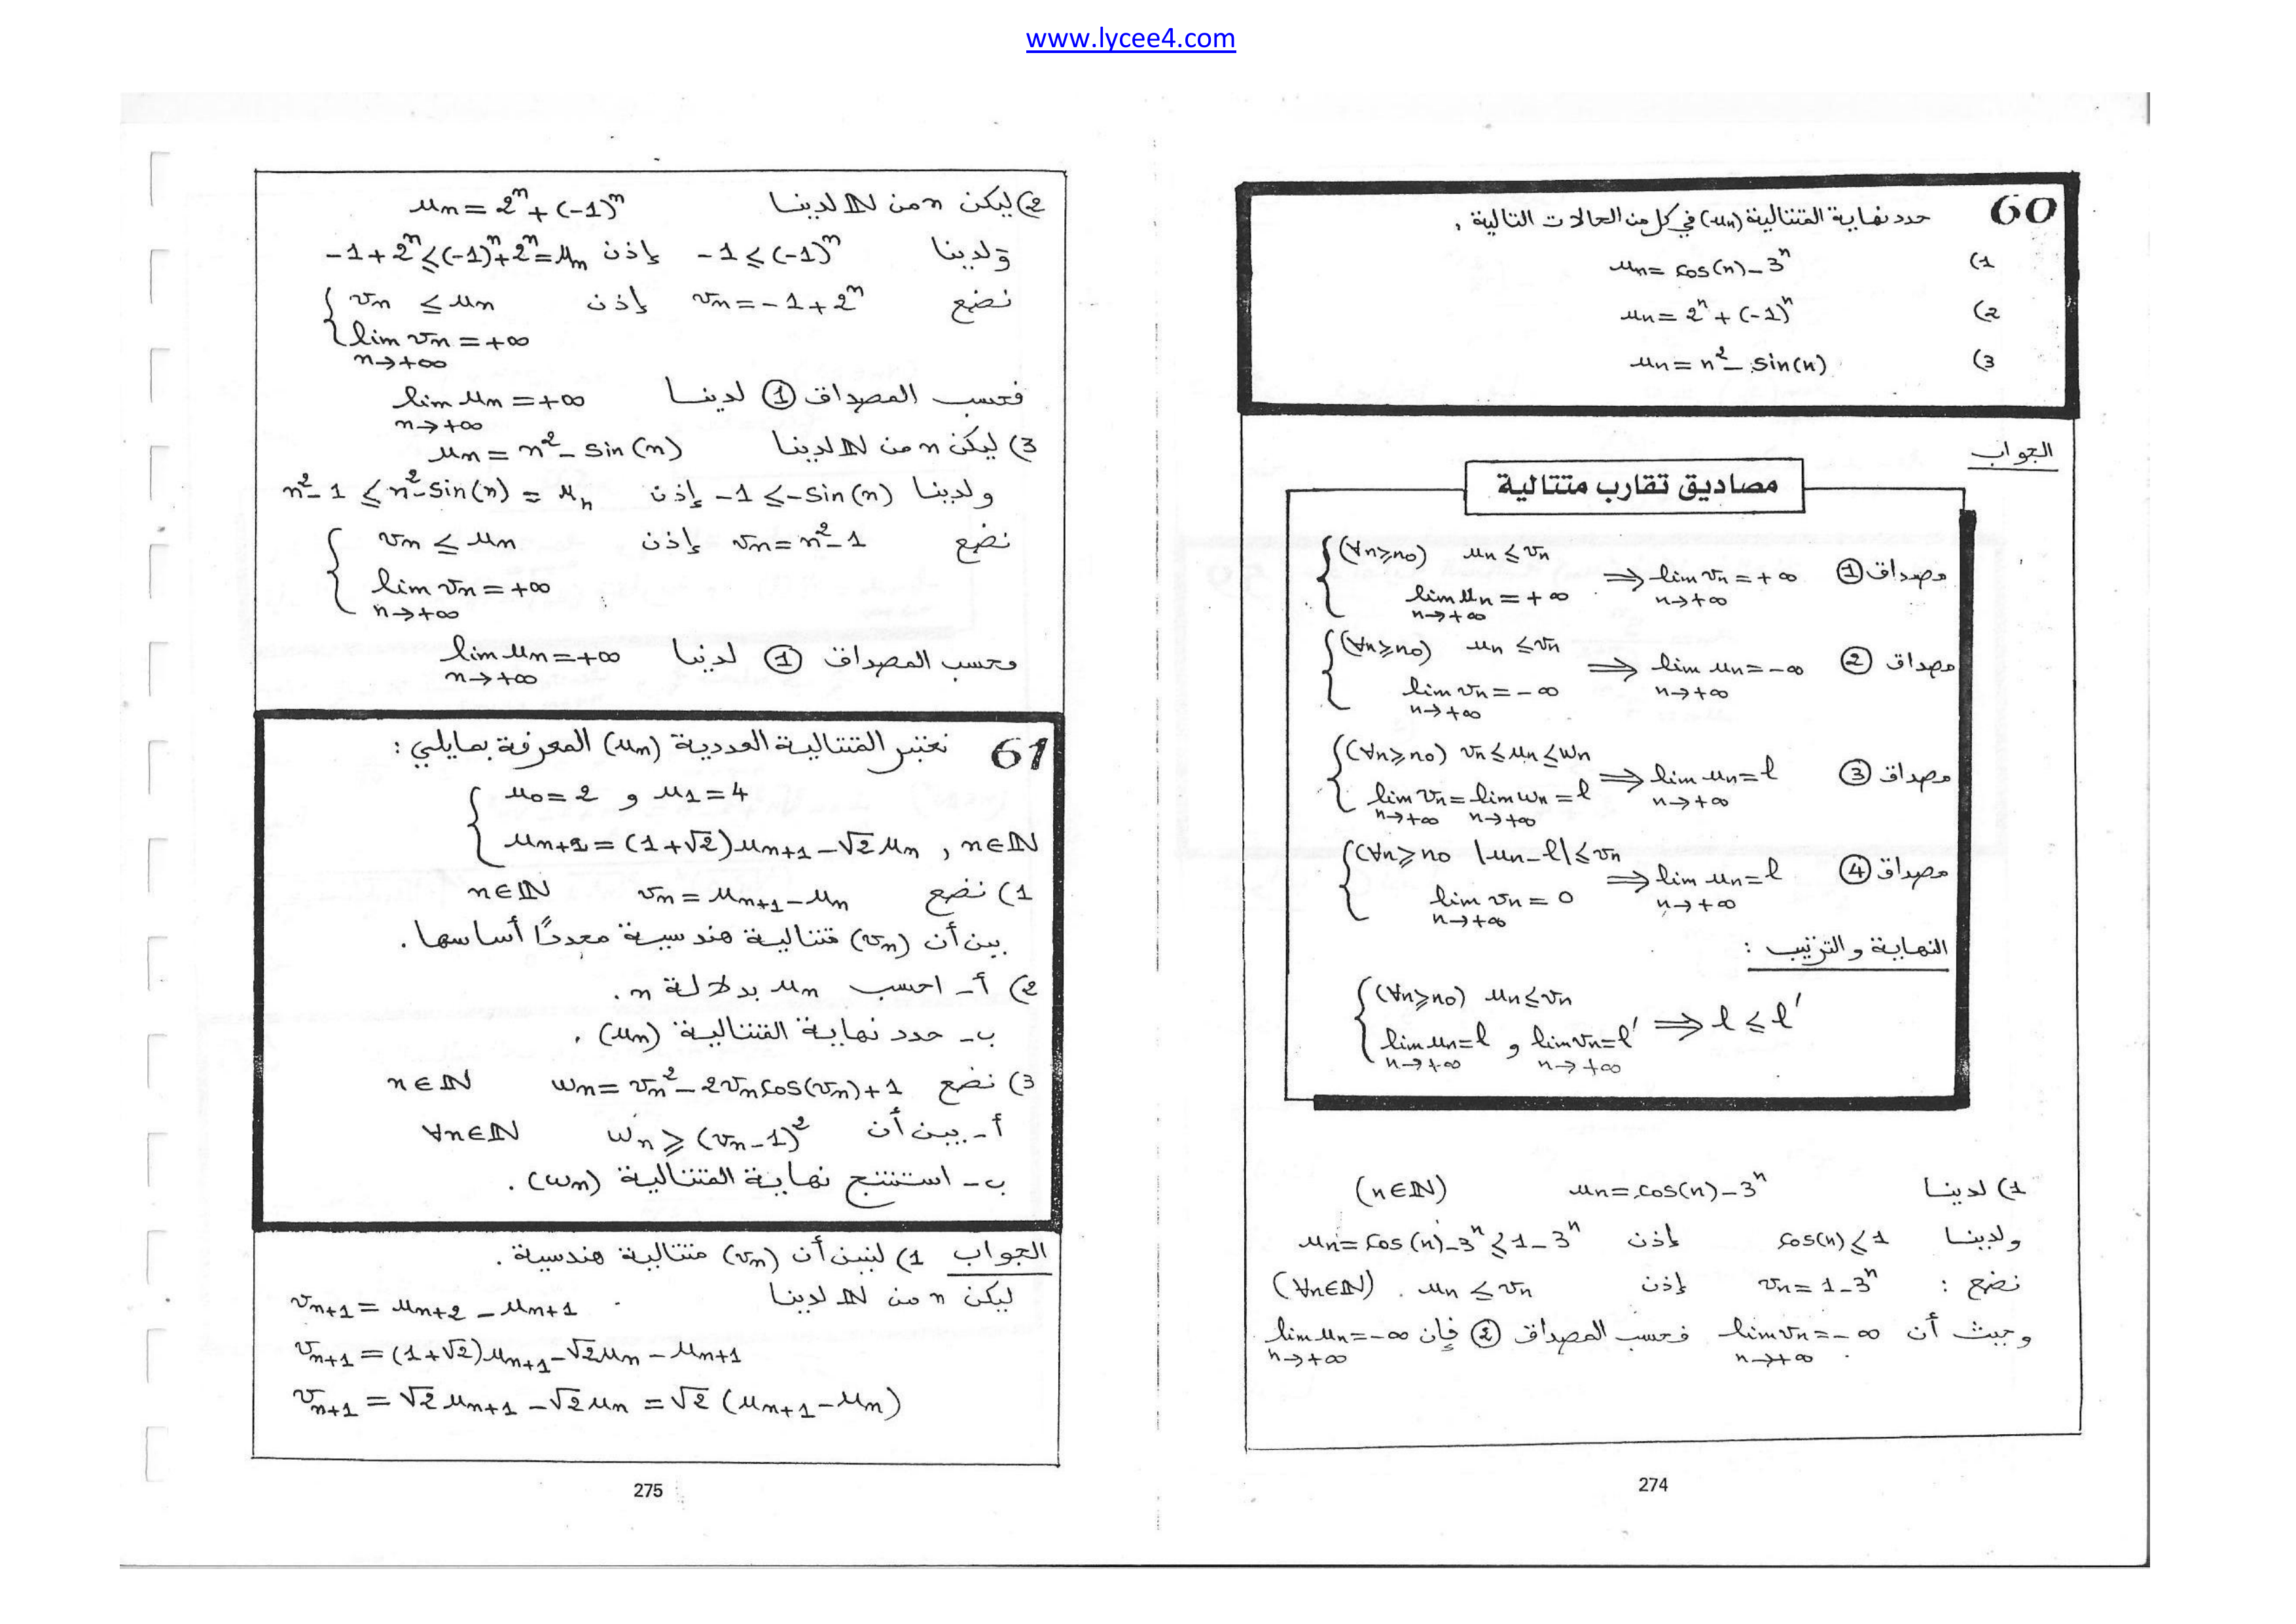 www.lycee4.com
60 حدد نهاية المتتالية (un) في كل من الحالات التالية .
1) un = cos(n) - 3^n
2) un = 2^n + (-1)^n
3) un = n^2 - sin(n)
الجواب
مصاديق تقارب متتالية
مصداق ① { (∀n≥n0) un ≤ vn ; lim un = +∞ n→+∞ ⟹ lim vn = +∞ n→+∞
مصداق ② { (∀n≥n0) un ≤ vn ; lim vn = -∞ n→+∞ ⟹ lim un = -∞ n→+∞
مصداق ③ { (∀n≥n0) vn ≤ un ≤ wn ; lim vn = lim wn = l n→+∞ n→+∞ ⟹ lim un = l n→+∞
مصداق ④ { (∀n≥n0 |un - l| ≤ vn ; lim vn = 0 n→+∞ ⟹ lim un = l n→+∞
النهاية والترتيب :
{ (∀n≥n0) un ≤ vn ; lim un = l n→+∞ و lim vn = l' n→+∞ ⟹ l ≤ l'
1) لدينا un = cos(n) - 3^n (n∈ℕ)
ولدينا cos(n) ≤ 1 إذن un = cos(n) - 3^n ≤ 1 - 3^n
نضع : vn = 1 - 3^n إذن un ≤ vn . (∀n∈ℕ)
وحيث أن lim vn = -∞ n→+∞ فحسب المصداق ② فإن lim un = -∞ n→+∞
274
2) ليكن n من ℕ لدينا un = 2^n + (-1)^n
ولدينا -1 ≤ (-1)^n إذن -1 + 2^n ≤ (-1)^n + 2^n = un
نضع vn = -1 + 2^n إذن { vn ≤ un
lim vn = +∞ n→+∞
فحسب المصداق ① لدينا lim un = +∞ n→+∞
3) ليكن n من ℕ لدينا un = n^2 - sin(n)
ولدينا -1 ≤ -sin(n) إذن n^2 - 1 ≤ n^2 - sin(n) = un
نضع vn = n^2 - 1 إذن { vn ≤ un
lim vn = +∞ n→+∞
وحسب المصداق ① لدينا lim un = +∞ n→+∞
61 نعتبر المتتالية العددية (un) المعرفة بمايلي :
{ u0 = 2 و u1 = 4
un+2 = (1+√2)un+1 - √2 un , n∈ℕ
1) نضع vn = un+1 - un n∈ℕ
بين أن (vn) متتالية هندسية محددًا أساسها .
2) أ - احسب un بدلالة n .
ب - حدد نهاية المتتالية (un) .
3) نضع wn = vn^2 - 2vn cos(vn) + 1 n∈ℕ
أ - بين أن wn ≥ (vn - 1)^2 ∀n∈ℕ
ب - استنتج نهاية المتتالية (wn) .
الجواب 1) لنبين أن (vn) متتالية هندسية .
ليكن n من ℕ لدينا vn+1 = un+2 - un+1
vn+1 = (1+√2)un+1 - √2un - un+1
vn+1 = √2 un+1 - √2un = √2 (un+1 - un)
275